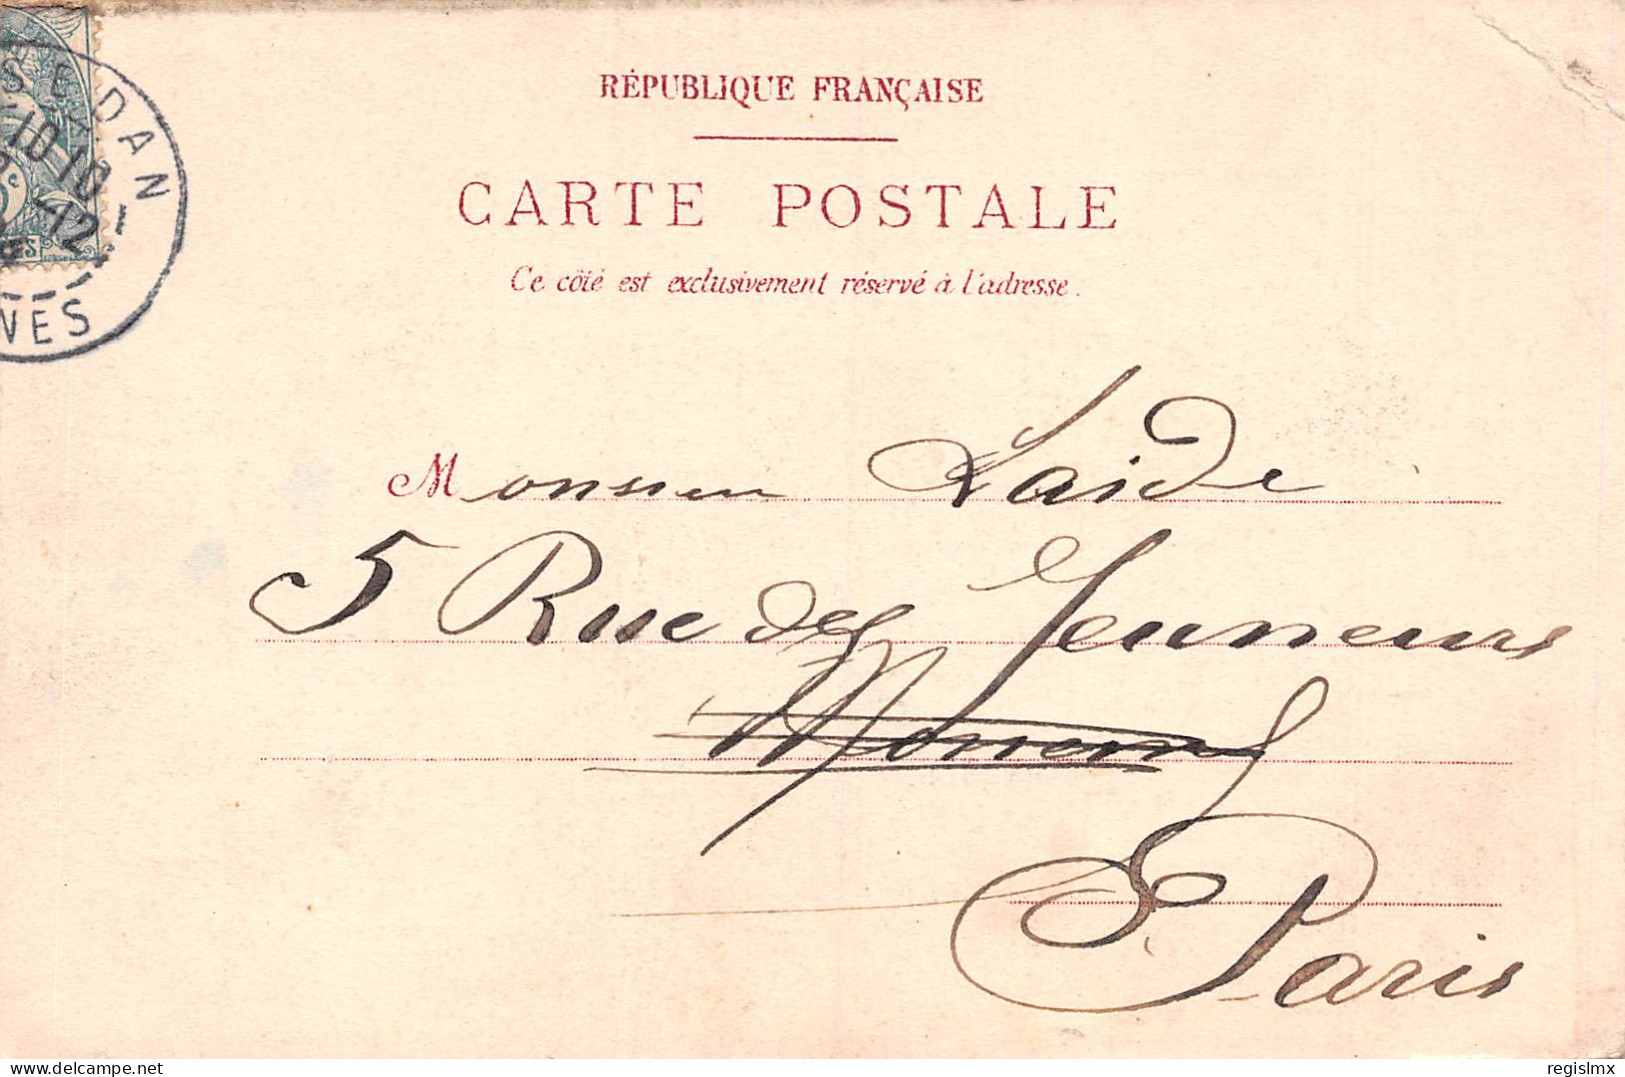 SEDAN
10 10
-12
NES
RÉPUBLIQUE FRANÇAISE
CARTE POSTALE
Ce côté est exclusivement réservé à l'adresse.
Monsieur Laide
5 Rue des Jeuneurs
Paris
delcampe.net
regislmx